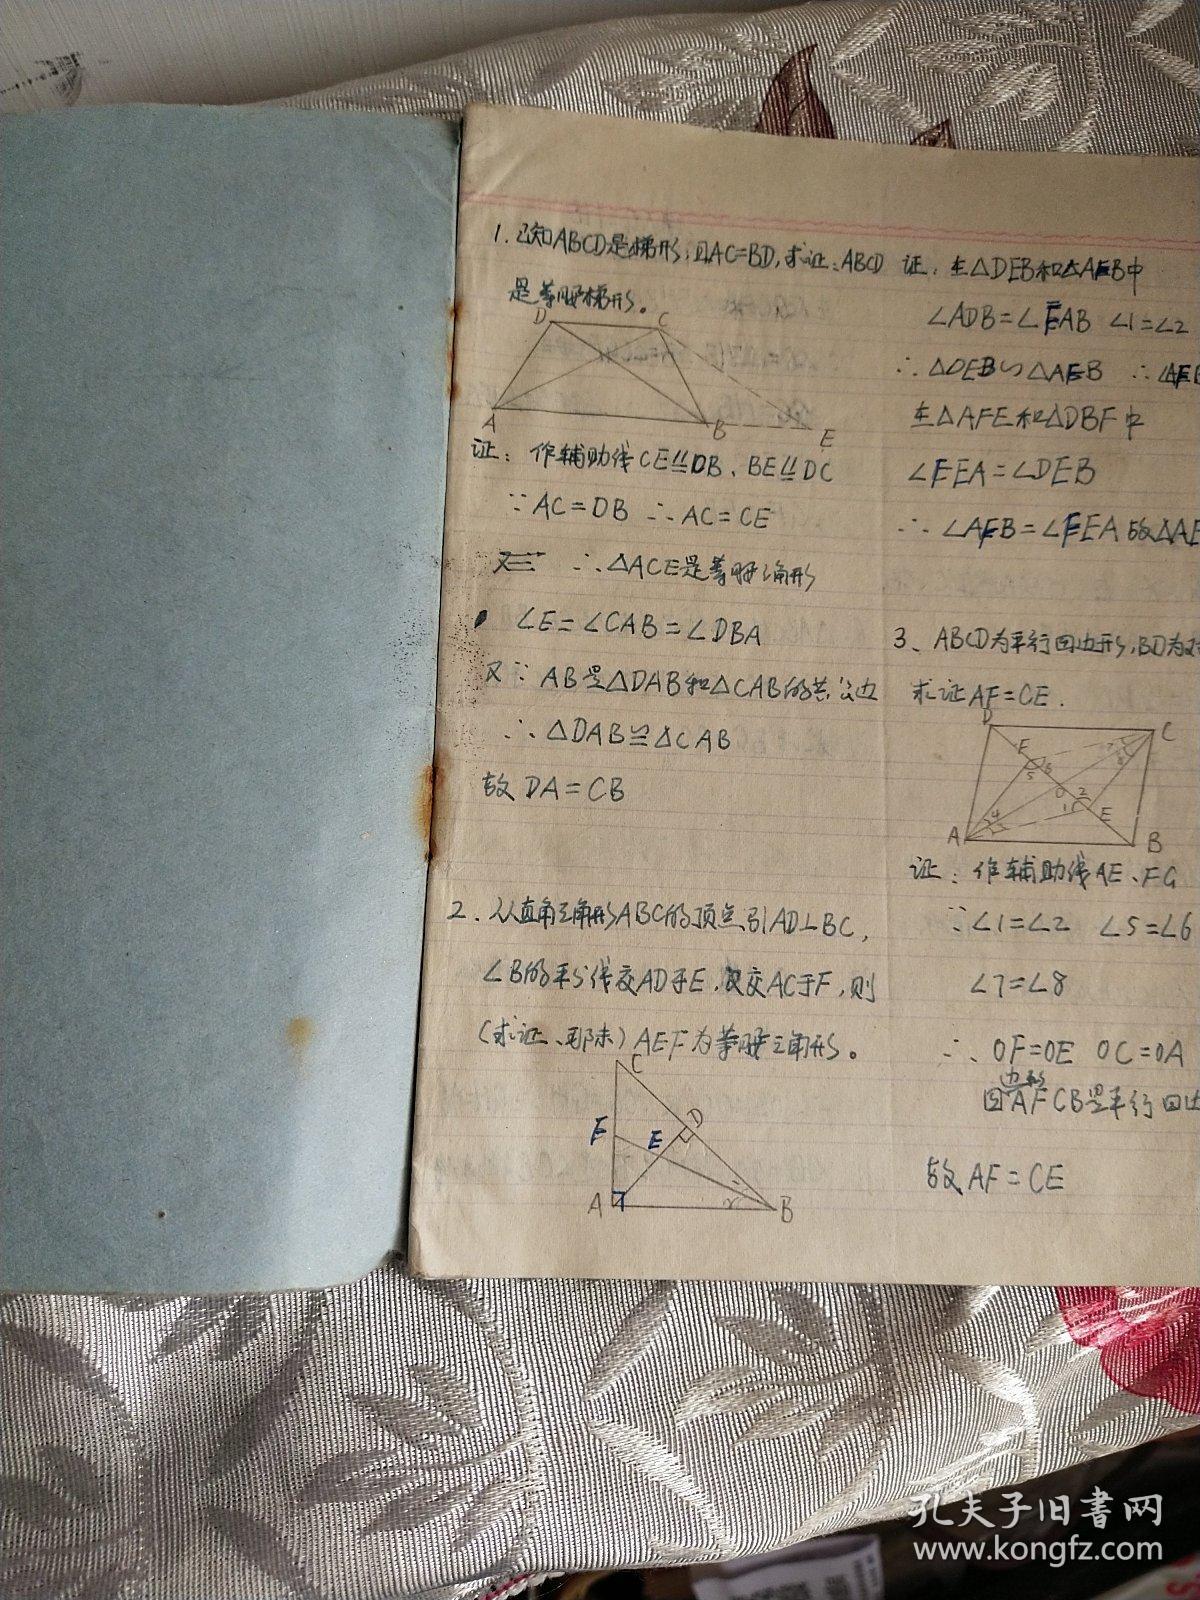 1. 已知ABCD是梯形,且AC=BD,求证:ABCD
是等腰梯形。
D C
A B E
证: 作辅助线CE∥DB、BE∥DC
∵AC=DB ∴AC=CE
∴△ACE是等腰三角形
∠E=∠CAB=∠DBA
又∵ AB是△DAB和△CAB的共公边
∴△DAB≌△CAB
故DA=CB
2. 从直角三角形ABC的顶点引AD⊥BC,
∠B的平分线交AD于E,交AC于F,则
(求证、那末)AEF为等腰三角形。
C
F E D
A B
证: 在△DEB和△AFB中
∠ADB=∠FAB ∠1=∠2
∴△DEB∽△AFB
在△AFE和△DBF中
∠FEA=∠DEB
∴∠AFB=∠FEA 故△AE
3、ABCD为平行四边形,BD为对
求证AF=CE.
D C
F
5 6
O 2
1 E
4
3
7
8
A B
证: 作辅助线AE、FG
∵∠1=∠2 ∠5=∠6
∠7=∠8
∴ OF=OE OC=OA
边形
四AFCB是平行四边
故AF=CE
孔夫子旧书网
www.kongfz.com